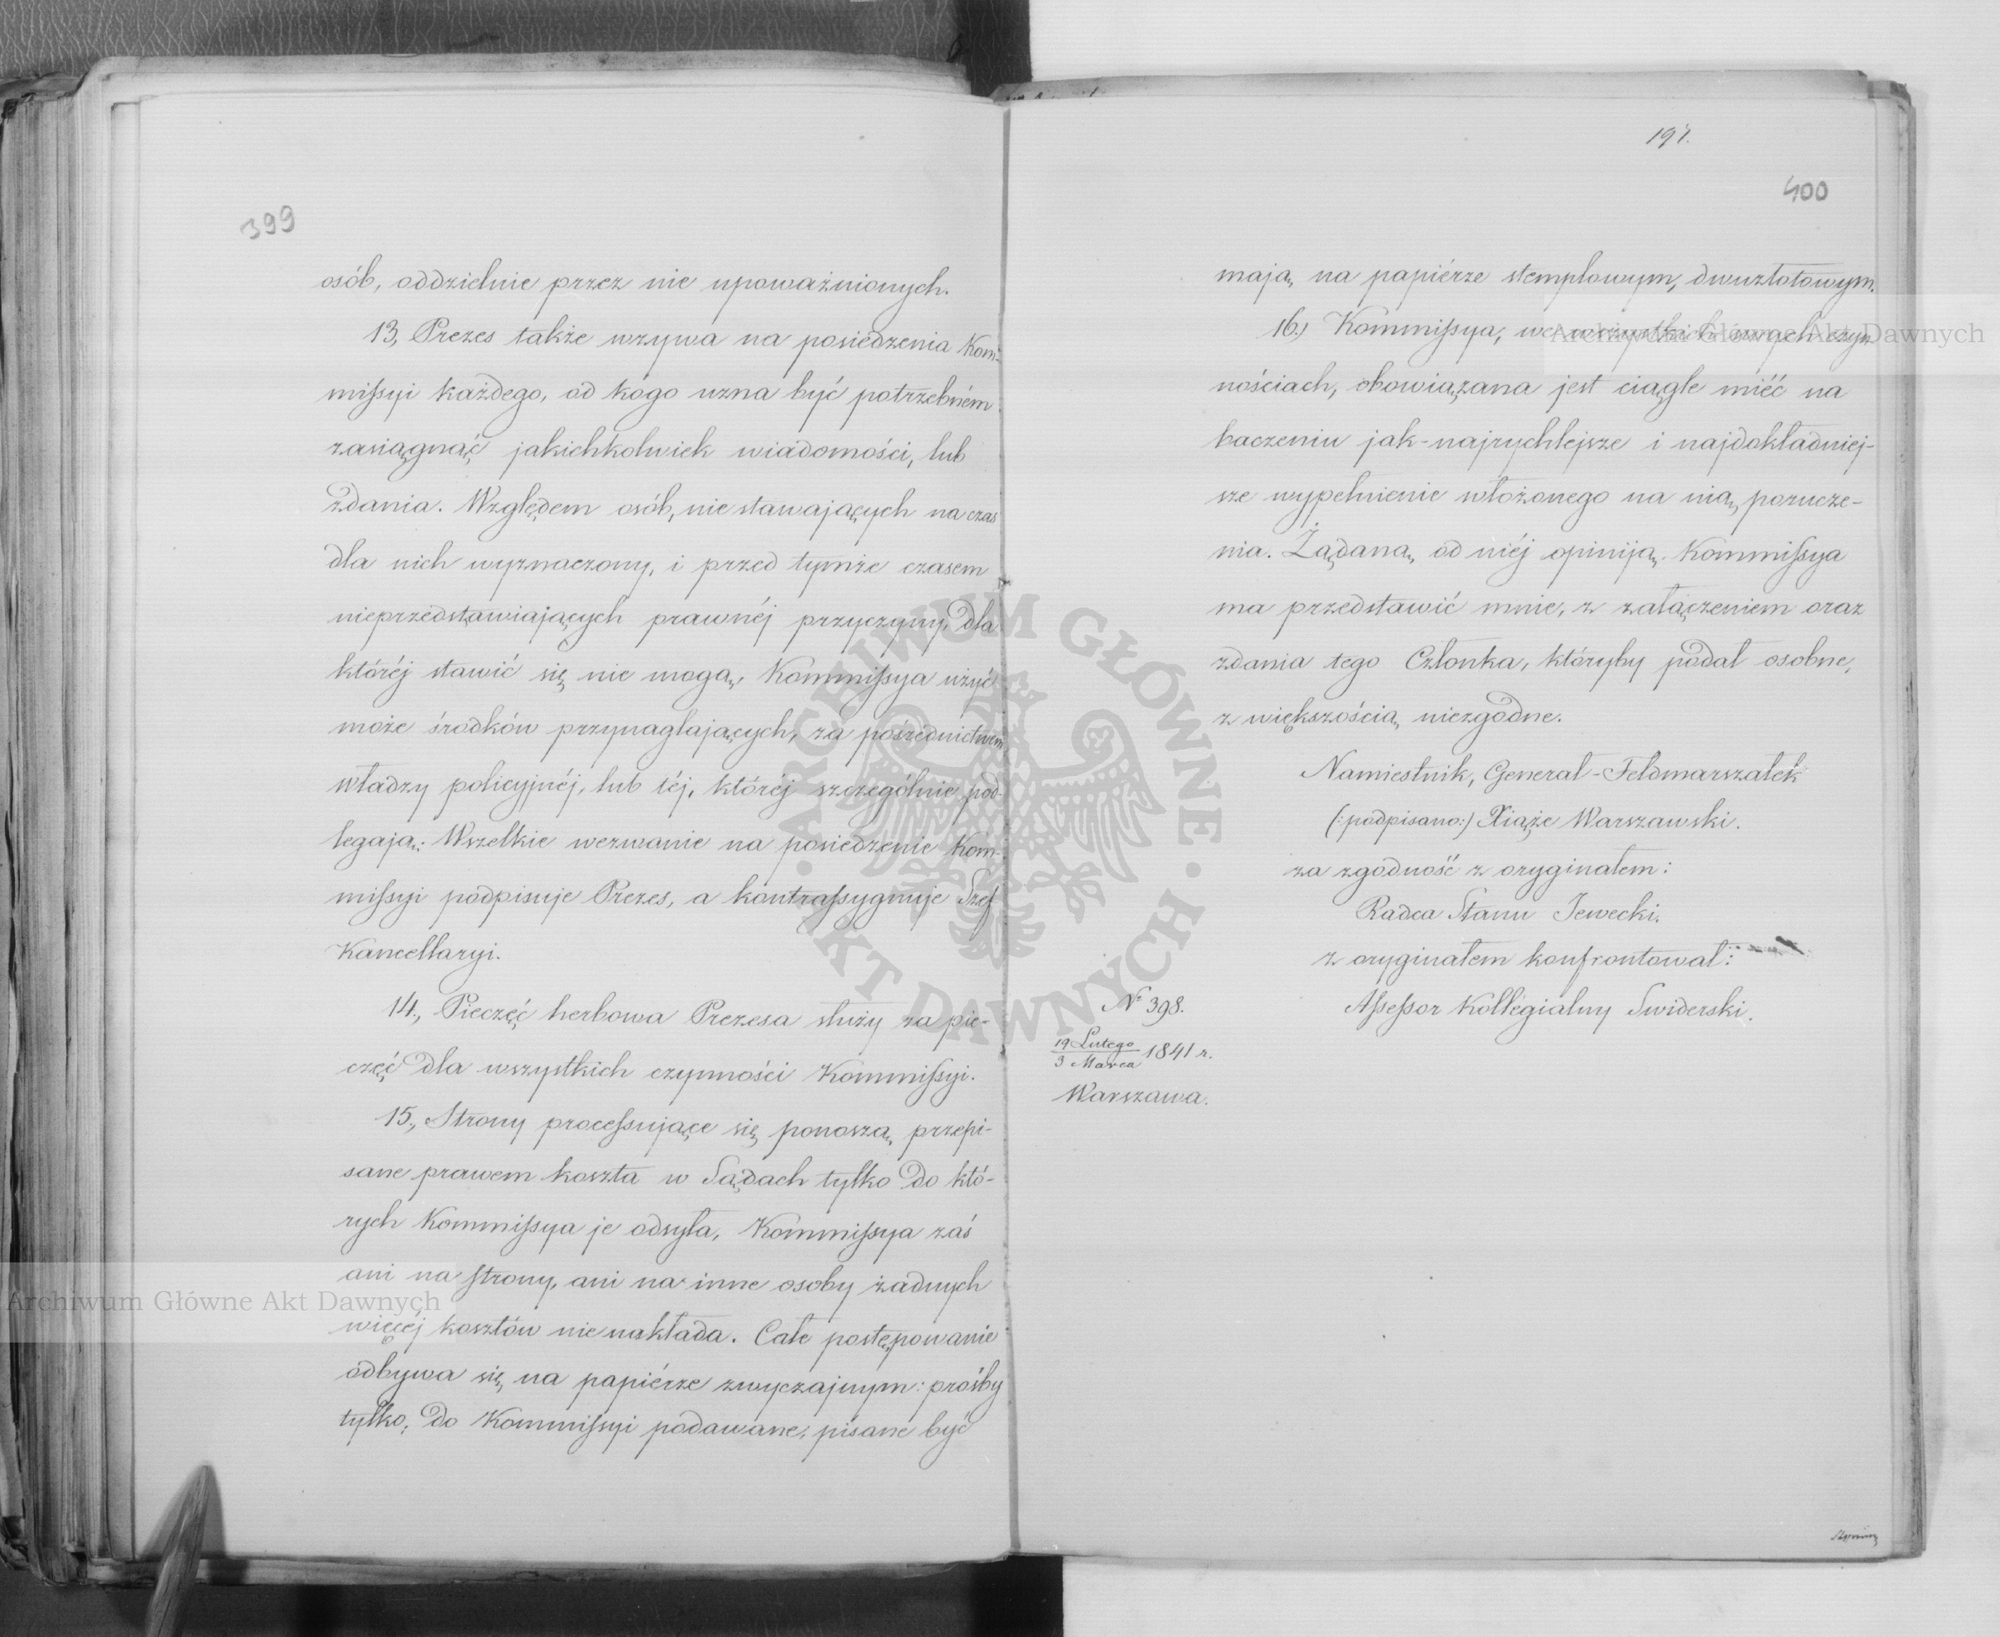 399
osób, oddzielnie przez nie upoważnionych.
13, Prezes także wzywa na posiedzenia Kom-
missyi każdego, od kogo uzna być potrzebném
zasiągnąć jakichkolwiek wiadomości, lub
zdania. Względem osób, nie stawających na czas
dla nich wyznaczony, i przed tymże czasem
nieprzedstawiających prawnéj przyczyny, dla
któréj stawić się nie mogą, Kommissya użyć
może środków przynaglających, za pośrednictwem
władzy policyjnéj, lub téj, któréj szczególnie pod-
legają: Wszelkie wezwanie na posiedzenie Kom-
missyi podpisuje Prezes, a kontrassygnuje Szef
Kancellaryi.
14., Pieczęć herbowa Prezesa służy za pie-
częć dla wszystkich czynności Kommissyi.
15., Strony processujące się ponoszą przepi-
sane prawem koszta w Sądach tylko do któ-
rych Kommissya je odsyła, Kommissya zaś
ani na strony, ani na inne osoby żadnych
więcéj kosztów nie nakłada. Całe postępowanie
odbywa się na papiérze zwyczajnym: prośby
tylko, do Kommissyi podawane, pisane być
197.
400
mają na papiérze stemplowym, dwuzłotowym.
16.) Kommissya, we wszystkich swych czyn-
nościach, obowiązana jest ciągle miéć na
baczeniu jak-najrychlejsze i najdokładniej-
sze wypełnienie włożonego na nią porucze-
nia. Żądaną od niéj opiniją Kommissya
ma przedstawić mnie, z załączeniem oraz
zdania tego Członka, któryby podał osobne,
z większością niezgodne.
Namiestnik, Generał-Feldmarszałek
(:podpisano:) Xiąże Warszawski.
za zgodność z oryginałem:
Radca Stanu Jewecki.
z oryginałem konfrontował:
Assessor Kollegialny Swiderski.
Nr 398.
19 Lutego
3 Marca 1841 r.
Warszawa.
Archiwum Główne Akt Dawnych
Archiwum Główne Akt Dawnych
ARCHIWUM GŁÓWNE · AKT DAWNYCH ·